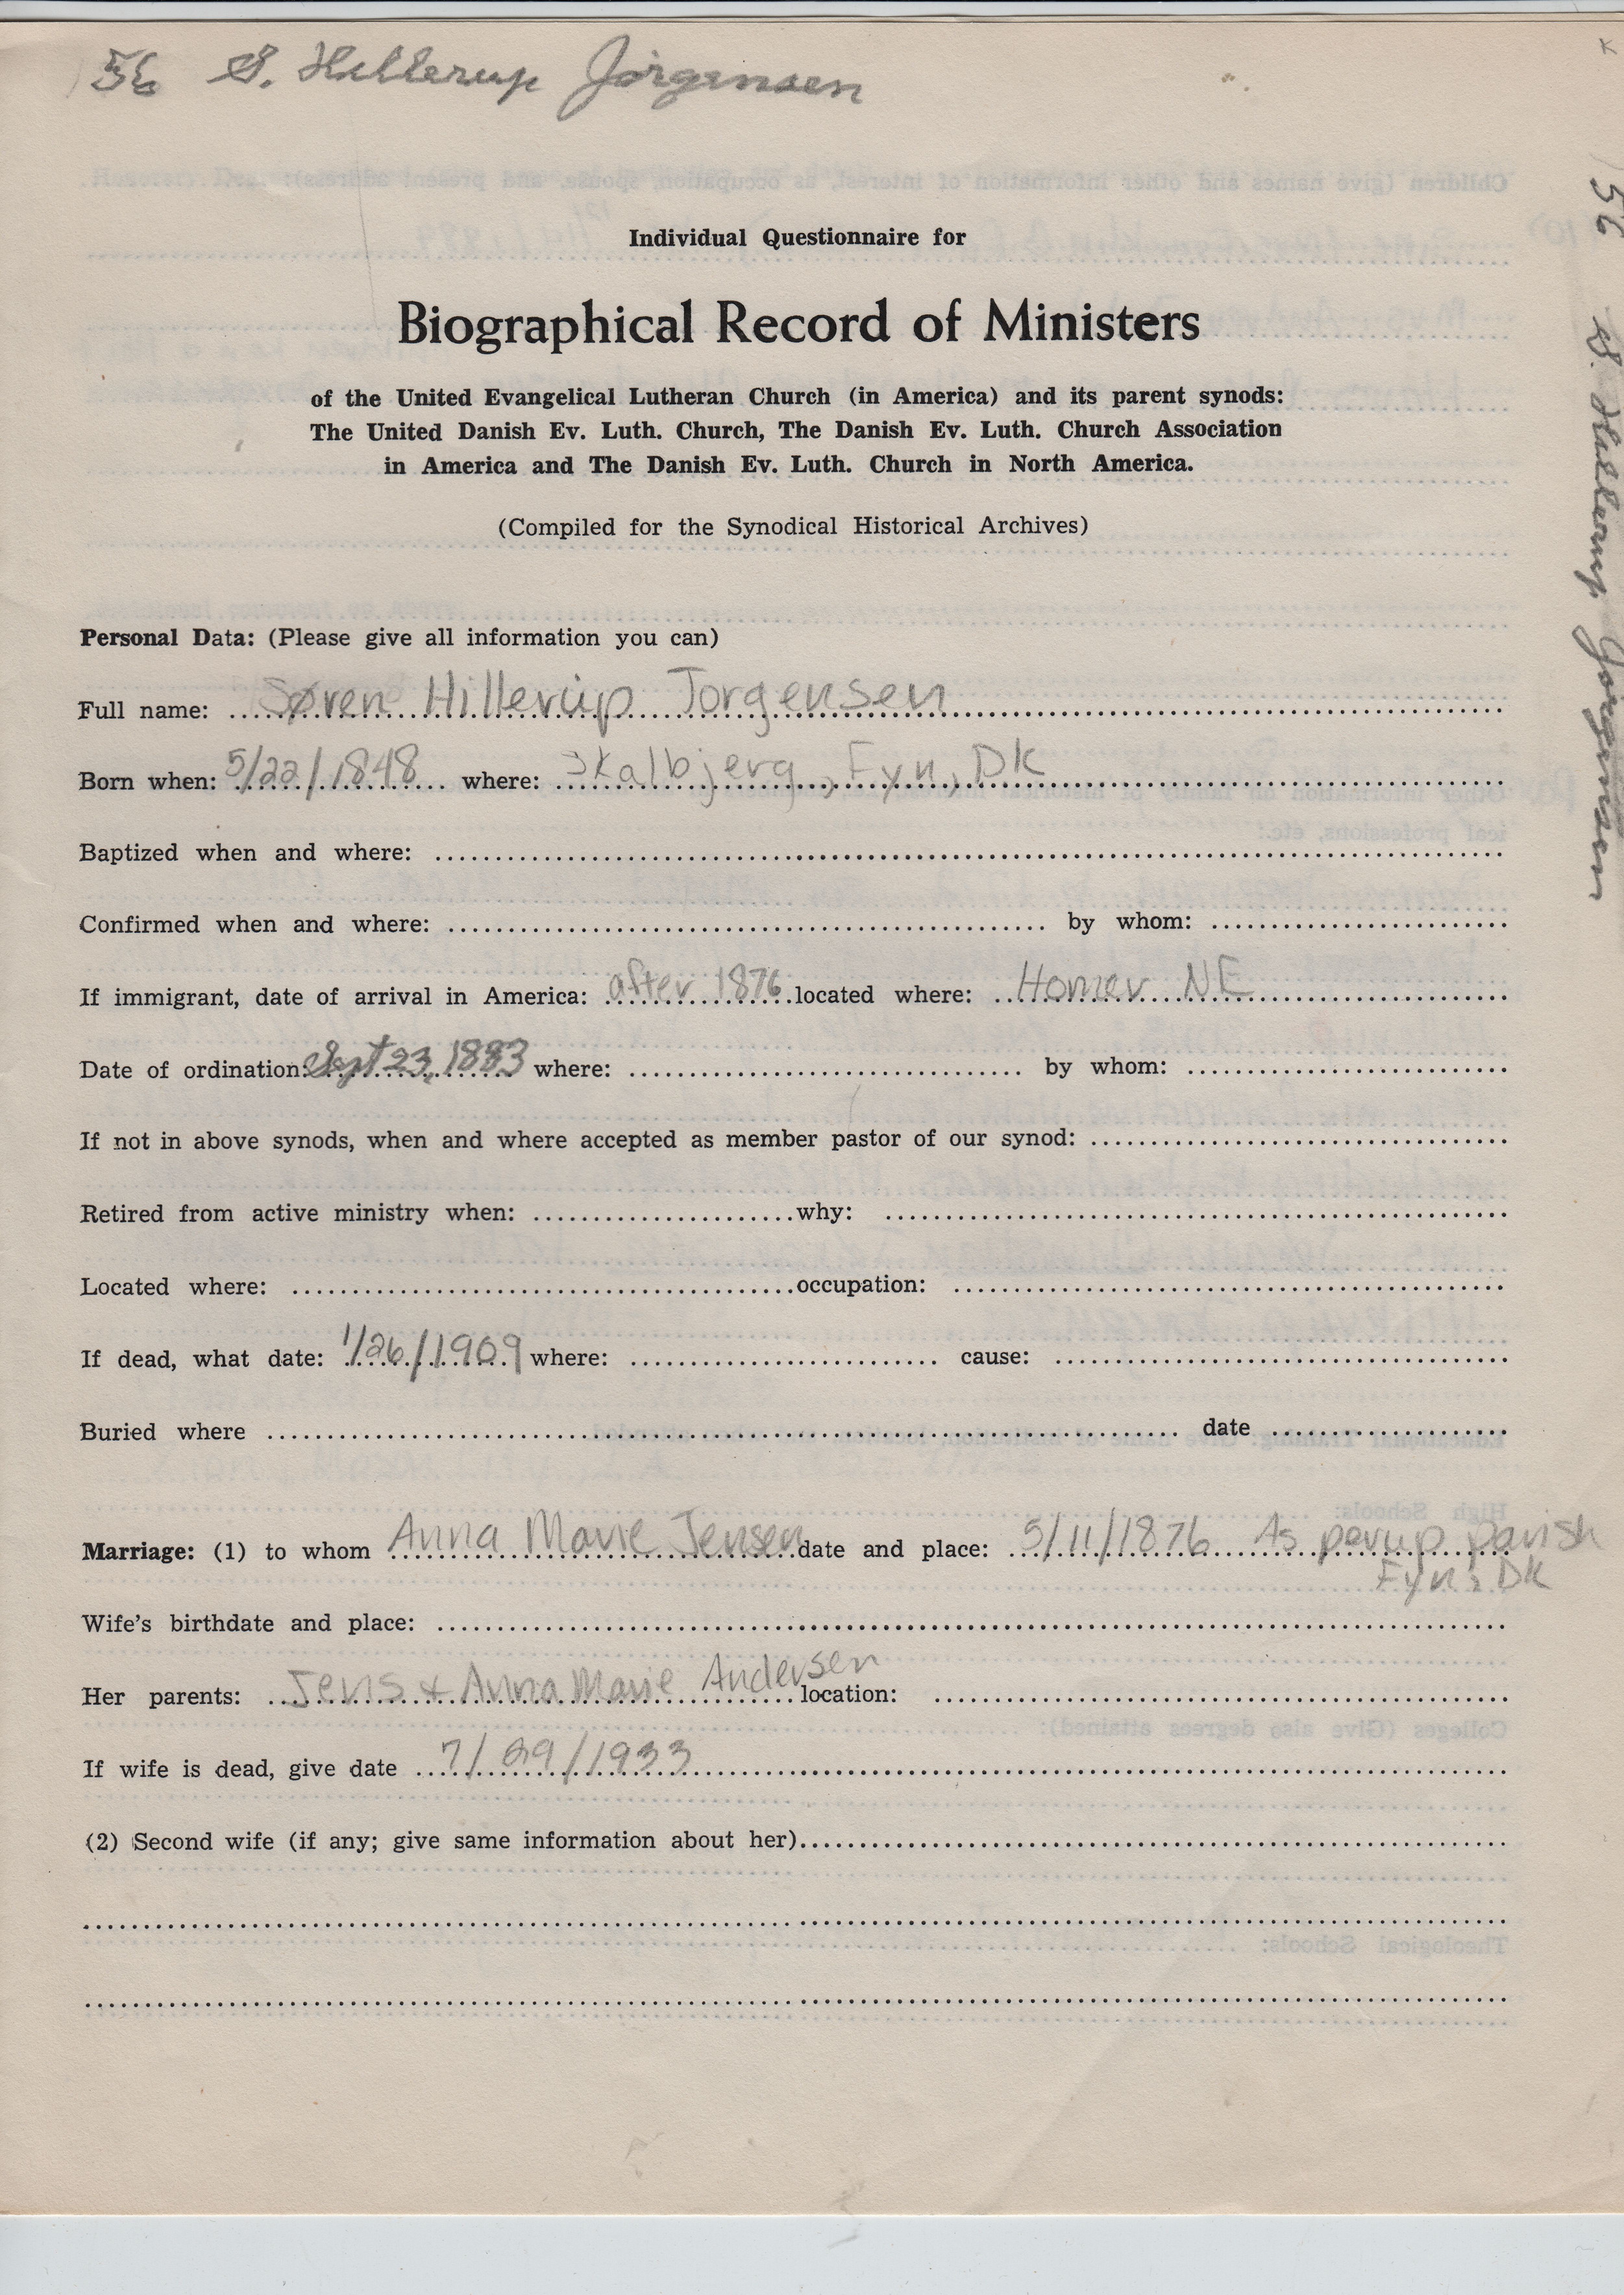 56 S. Hillerup Jörgensen
Individual Questionnaire for
Biographical Record of Ministers
of the United Evangelical Lutheran Church (in America) and its parent synods:
The United Danish Ev. Luth. Church, The Danish Ev. Luth. Church Association
in America and The Danish Ev. Luth. Church in North America.
(Compiled for the Synodical Historical Archives)
Personal Data: (Please give all information you can)
Full name: Søren Hillerup Jorgensen
Born when: 5/22/1848 where: Skalbjerg, Fyn, DK
Baptized when and where:
Confirmed when and where: by whom:
If immigrant, date of arrival in America: after 1876 located where: Homer NE
Date of ordination: Sept 23, 1883 where: by whom:
If not in above synods, when and where accepted as member pastor of our synod:
Retired from active ministry when: why:
Located where: occupation:
If dead, what date: 1/26/1909 where: cause:
Buried where date
Marriage: (1) to whom Anna Marie Jensen date and place: 5/11/1876 As perup parish
Fyn, DK
Wife's birthdate and place:
Her parents: Jens & Anna Marie Andersen location:
If wife is dead, give date 7/29/1933
(2) Second wife (if any; give same information about her)
56 S. Hillerup Jorgensen